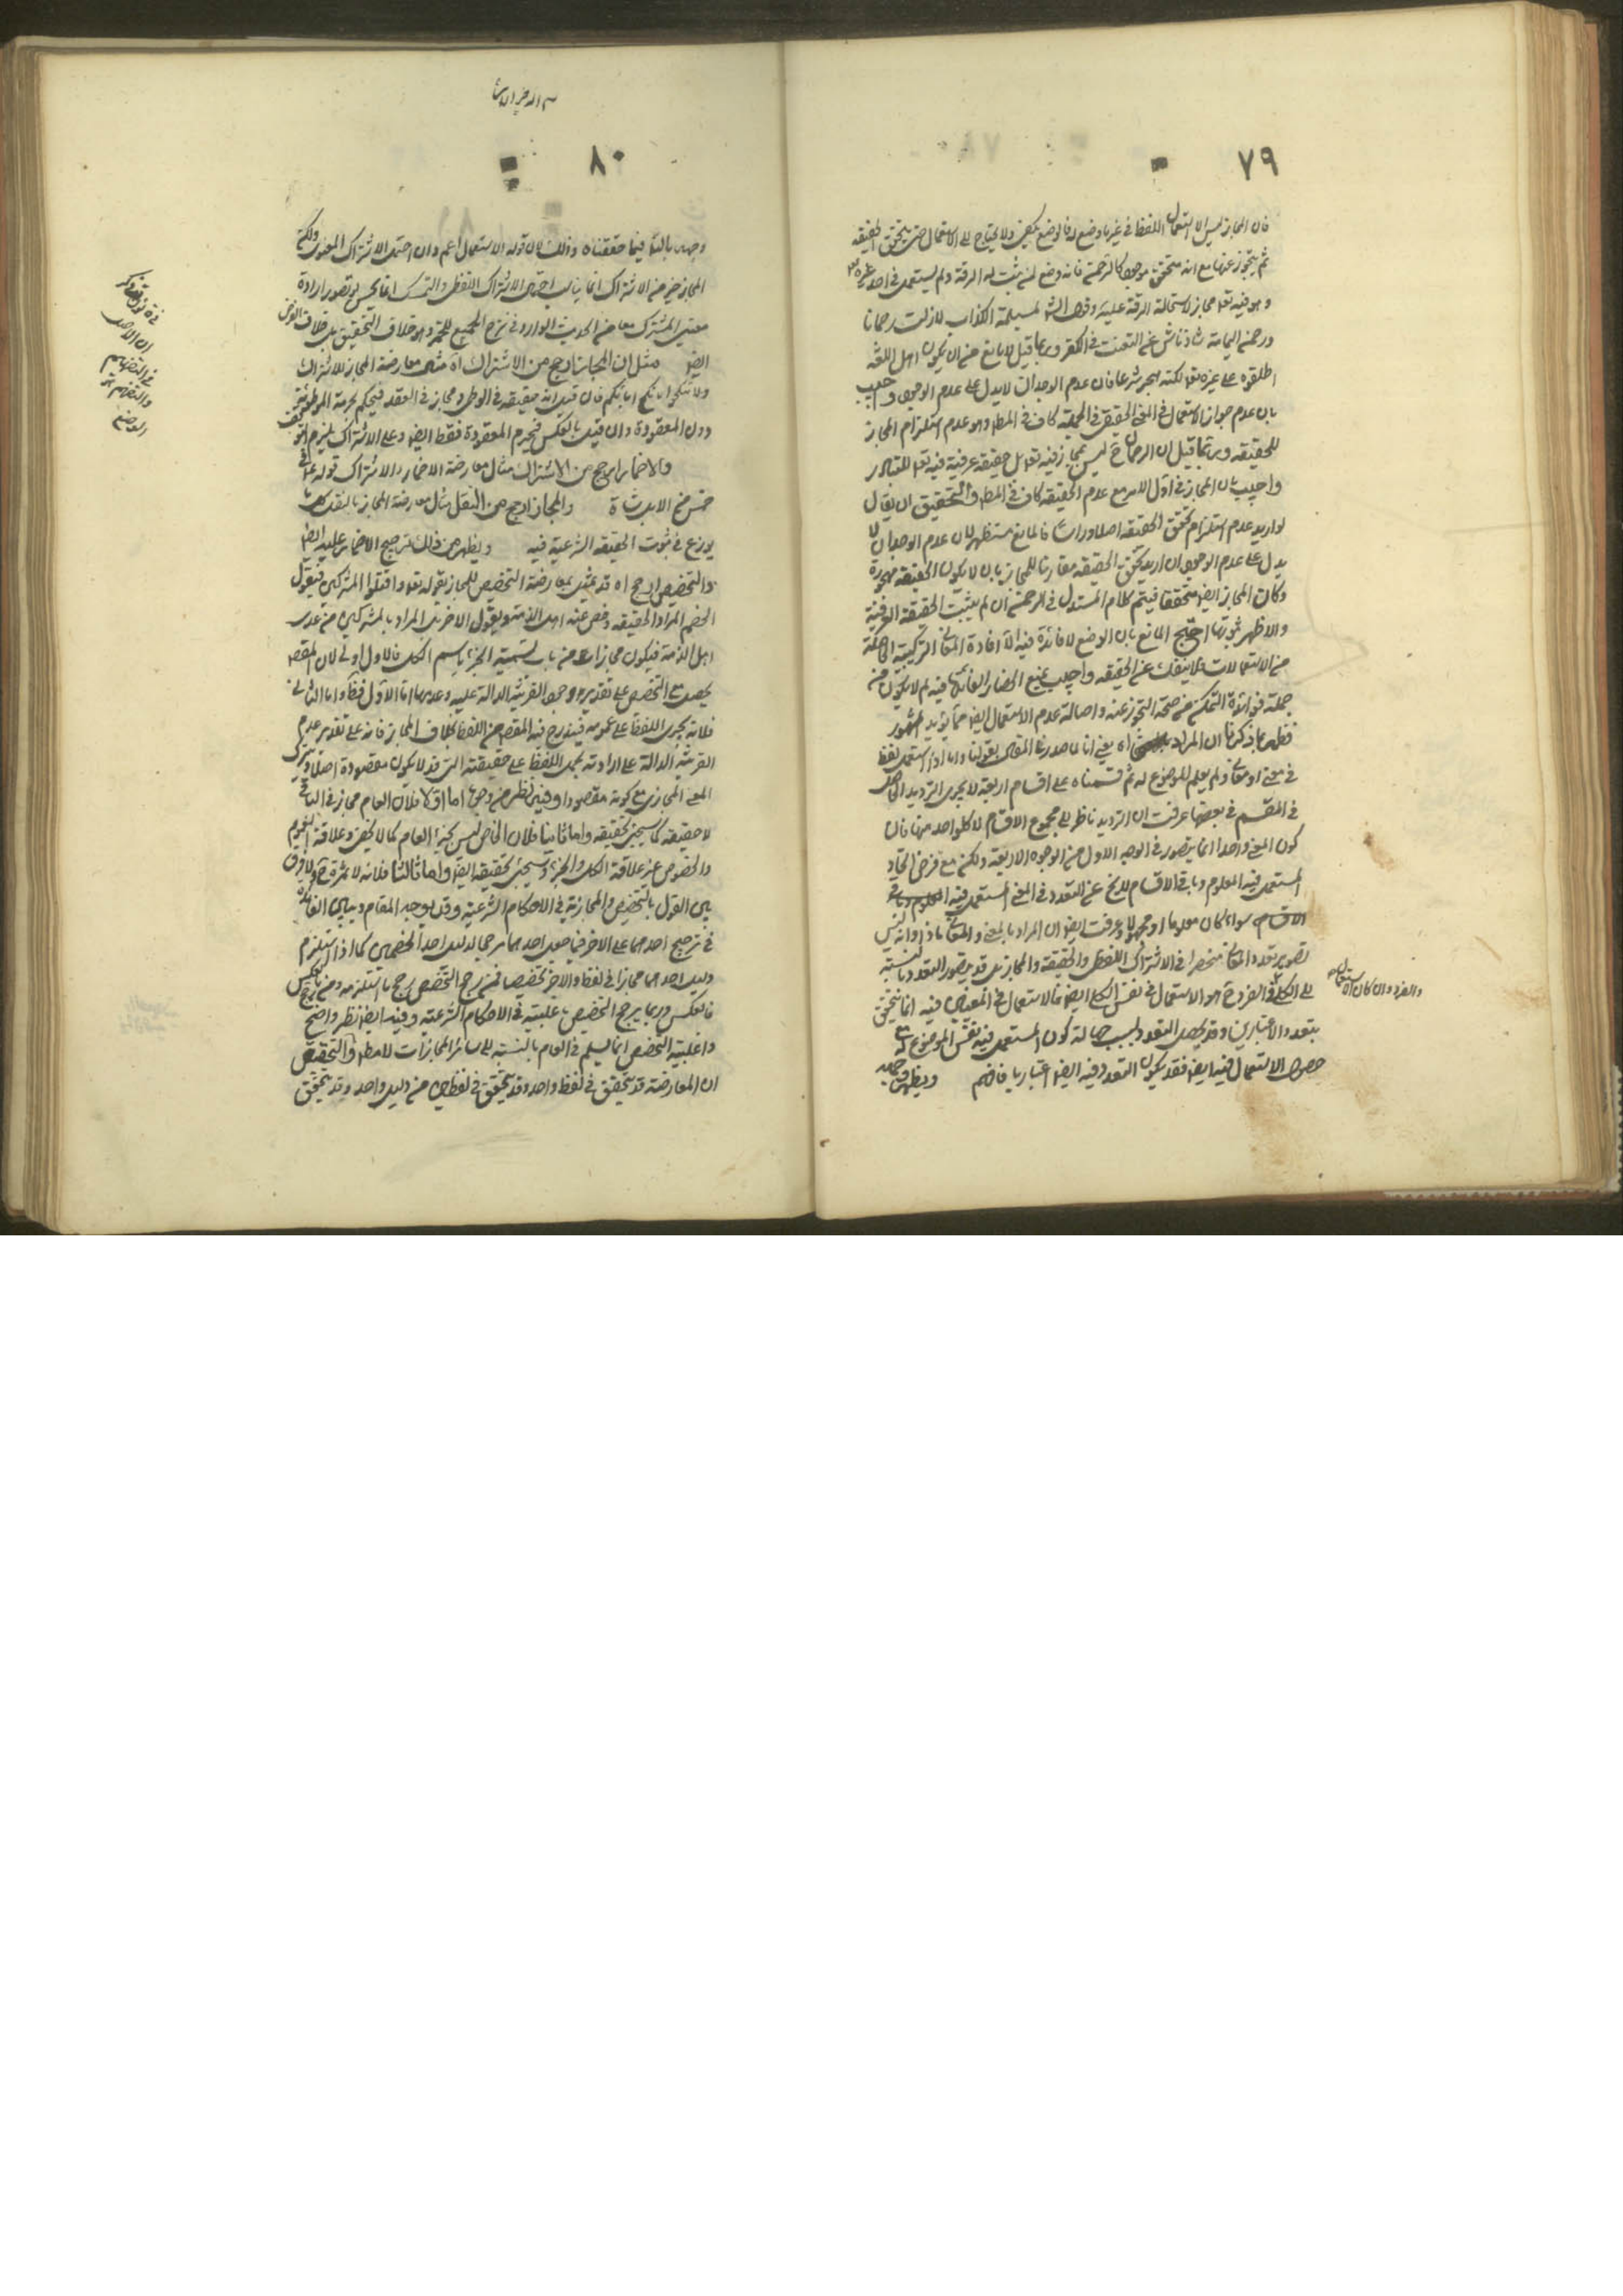 ٧٩
فان المجاز ليس الا استعمال اللفظ في غير ما وضع له فالوضع يكفي ولا يحتاج الى الاستعمال حتى يتحقق الحقيقة
ثم يتجوز عنها مع انه متحقق موجود كالرحمن فانه وضع لمن ثبت له الرقة ولم يستعمل في احد غيره تع
وهو فيه تعا مجاز لاستحالة الرقة عليه وقول الشا لمسيلمة الكذاب لا زلت رحمانا
ورحمن اليمامة شاذ ناش عن التعنت في الكفر وربما قيل لا مانع من ان يكون اهل اللغة
اطلقوه على غيره تعا لكنه هجر شرعا فان عدم الوجدان لا يدل على عدم الوجود واجيب
بان عدم جواز الاستعمال في المعنى الحقيقي في الجملة كاف في المط وهو عدم استلزام المجاز
للحقيقه وربما قيل ان الرحمان ح ليس بمجاز فيه تعا بل حقيقه عرفية فيه تعا للتبادر
واجيب بان المجاز في اول الامر مع عدم الحقيقه كاف في المط والتحقيق ان يقال
لو اريد عدم استلزام تحقق الحقيقه اصلا وراسا فالمانع مستظهر لان عدم الوجدان لا
يدل على عدم الوجود وان اريد تحقق الحقيقه مقارنا للمجاز بان لا يكون الحقيقه مهجورة
وكان المجاز ايضا متحققا فيتم كلام المستدل في الرحمن ان لم يثبت الحقيقة العرفية
والاظهر ثبوتها احتج المانع بان الوضع لا فائدة فيه الا افادة المعاني التركيبية الحاصلة
من الاستعمالات فلا ينفك عن الحقيقه واجيب بمنع انحصار الفائدة فيه لم لا يكون من
جملة فوائده التمكن من صحة التجوز عنه واصالة عدم الاستعمال ايضا مما يؤيد المشهور
فظهر بما ذكرنا ان المراد اه يعني انا لما صدرنا المقال بقولنا واما اذا استعمل لفظ
في معنى او معان ولم يعلم الموضوع له ثم قسمناه على اقسام اربعة لا يجري الترديد الحاصل
في المقسم في بعضها عرفت ان الترديد ناظر الى مجموع الاقسام لا كل واحد منها فان
كون المعنى واحدا انما يتصور في الوجه الاول من الوجوه الاربعة ولكن مع فرض اتحاد
المستعمل فيه المعلوم وباقي الاقسام لا يخ عن التعدد في المعنى المستعمل فيه
سواء كان معلوما او مجهولا وعرفت ايضا ان المراد بالمعنى والمعاني ماذا وانه ليس
تصوير تعدد المعاني منحصرا في الاشتراك اللفظي والحقيقه والمجاز بل قد يتصور التعدد بالنسبة
الى الكلي والفرد ح هو الاستعمال في نفس الكلي ايضا فالاستعمال في المعنيين فيه انما يتحقق
بتعدد الاعتبارين وقد يحصل التعدد بسبب جهالة كون المستعمل فيه نفس الموضوع له مع
حصول الاستعمال فيه ايضا فقد يكون التعدد فيه ايضا اعتباريا فافهم ويظهر وجهه
والفرد وان كان اه
٨٠
بالتا فيما حققناه وذلك لان قوله الاستعمال اعم وان احتمل الاشتراك المعنوي ولكن
المجاز خير من الاشتراك انما يناسب احتمال الاشتراك اللفظي والتمسك انما يحسن لو تصور ارادة
ايضا مثل ان المجاز ارجح من الاشتراك اه مثال معارضة المجاز للاشتراك
ولا تنكحوا ما نكح اباؤكم فان قيل انه حقيقه في الوطي ومجاز في العقد فيحكم بحرمة الموطوئة
دون المعقودة وان قيل بالعكس فيحرم المعقودة فقط ايضا وعلى الاشتراك يلزم التوقف
والاضمار ارجح من الاشتراك مثال معارضة الاضمار والاشتراك قوله ع في
خمس من الابل شاة والمجاز ارجح من النقل مثال معارضة المجاز بالنقل
نوزع في ثبوت الحقيقه الشرعية فيه ويظهر من ذلك ترجيح الاضمار عليه ايضا
والتخصيص ارجح اه قد يمثل بمعارضة التخصيص للمجاز بقوله تعا واقتلوا المشركين فيقول
الخصم المراد الحقيقه وخص عنه اهل الذمة ويقول الاخر بل المراد بالمشركين من عدى
اهل الذمة فيكون مجازا من باب تسمية الجزء باسم الكل فالاول اولى لان المقصد
يحصل مع التخصيص على تقديري وجود القرينة الدالة عليه وعدمها اما الاول فظ واما الثاني
فلانه يجري اللفظ على عمومه فيندرج فيه المقصد من اللفظ بخلاف المجاز فانه على تقدير عدم
القرينة الدالة على ارادته يحمل اللفظ على حقيقته التي قد لا يكون مقصودة اصلا ويترك
المعنى المجازي مع كونه مقصودا وفيه نظر من وجوه اما اولا فلان العام مجاز في الباقي
لا حقيقه كما سيجئ تحقيقه واما ثانيا فلان الخاص ليس بجزء العام كما لا يخفى وعلاقة العموم
والخصوص غير علاقة الكل والجزء وسيجئ تحقيقه ايضا واما ثالثا فلانه لا ثمرة ح ولا فرق
بين القول بالتخصيص والمجازية في الاحكام الشرعية وقد يوجه المقام وبيان الفائدة
في ترجيح احدهما على الاخر فيما جعل احدهما مرجحا لدليل احد الخصمين كما اذا استلزم
دليل احدهما مجازا في لفظ والاخر تخصيصا فمن رجح التخصيص رجح ما استلزمه ومن رجح بالعكس
فالعكس وربما يرجح التخصيص باغلبيته في الاحكام الشرعية وفيه ايضا نظر واضح
واغلبية التخصيص انما يسلم في العام بالنسبة الى سائر المجازات لا مط والتحقيق
ان المعارضة قد يتحقق في لفظ واحد وقد يتحقق في لفظين من دليل واحد وقد يتحقق